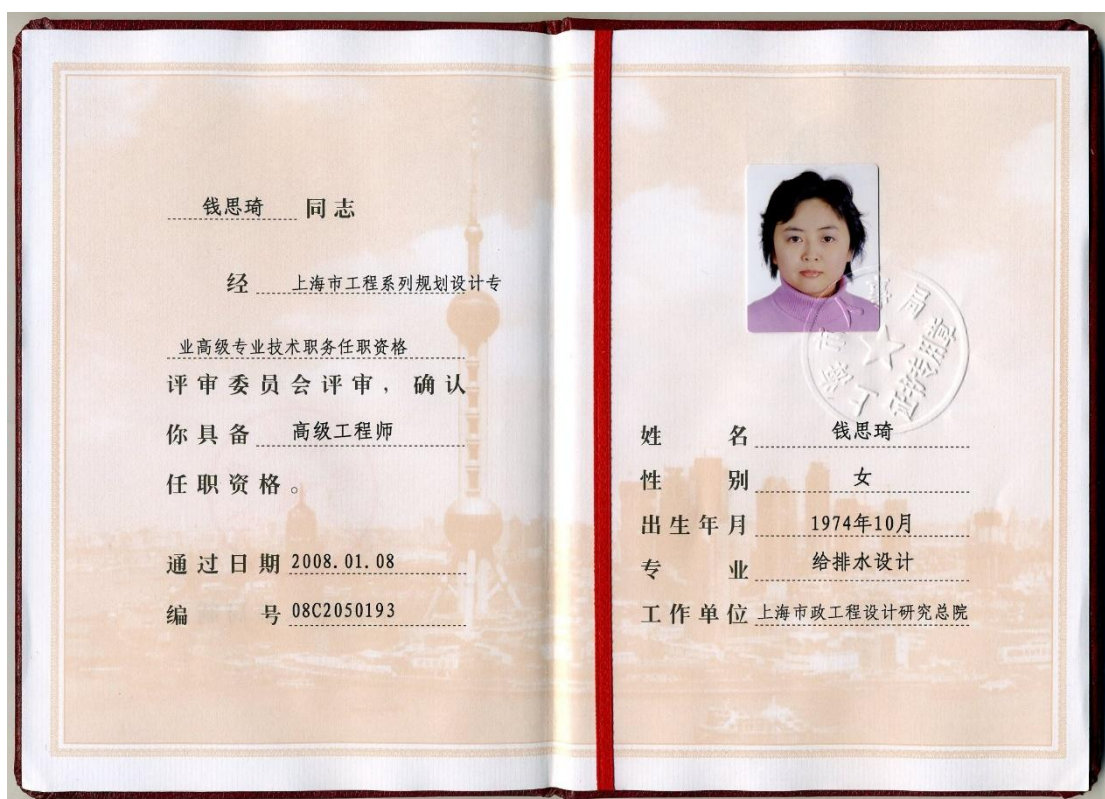 钱思琦 同志
经 上海市工程系列规划设计专
业高级专业技术职务任职资格
评审委员会评审，确认
你具备 高级工程师
任职资格。
通过日期 2008.01.08
编 号 08C2050193
证书专用章
姓 名 钱思琦
性 别 女
出生年月 1974年10月
专 业 给排水设计
工作单位 上海市政工程设计研究总院